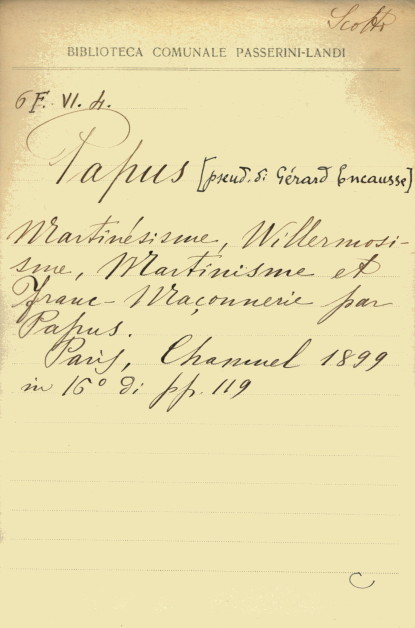 Scotti
BIBLIOTECA COMUNALE PASSERINI-LANDI
6 F. VI. 4.
Papus [pseud. di Gérard Encausse]
Martinésisme, Willermosi-
sme, Martinisme et
Franc-Maçonnerie par
Papus.
Paris, Chamuel 1899
in 16° di pp. 119
C